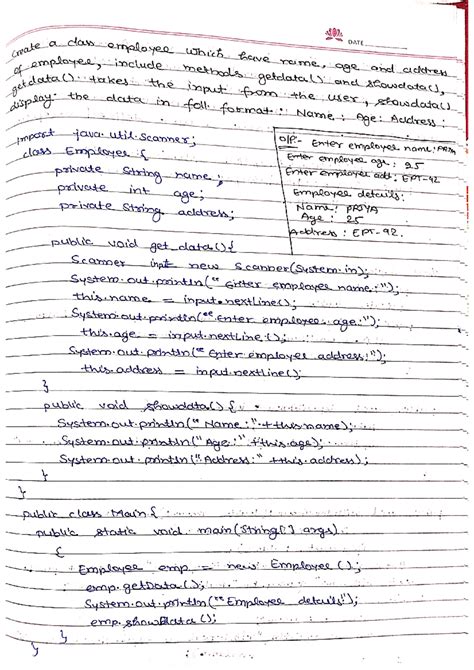 DATE
Create a class employee which have name, age and address
of employee, include methods getdata() and showdata(),
getdata() takes the input from the user, showdata()
display the data in foll format: Name: Age: Address:
import java.util.Scanner;
class Employee {
private String name;
private int age;
private String address;
O/P:- Enter employee name: PRIYA
Enter employee age: 25
Enter employee add: EPT-92
Employee details:
Name: PRIYA
Age: 25
Address: EPT-92.
public void get data(){
Scanner inpt new Scanner(System.in);
System.out.println("Enter employee name:");
this.name = input.nextLine();
System.out.println("Enter employee age:");
this.age = input.nextLine();
System.out.println("Enter employee address:");
this.address = input.nextLine();
}
public void showdata() {
System.out.println("Name:" + this.name);
System.out.println("Age:" + this.age);
System.out.println("Address:" + this.address);
}
}
public class Main {
public static void main(String[] args)
{
Employee emp = new Employee();
emp.getData();
System.out.println("Employee details");
emp.showData();
}
}